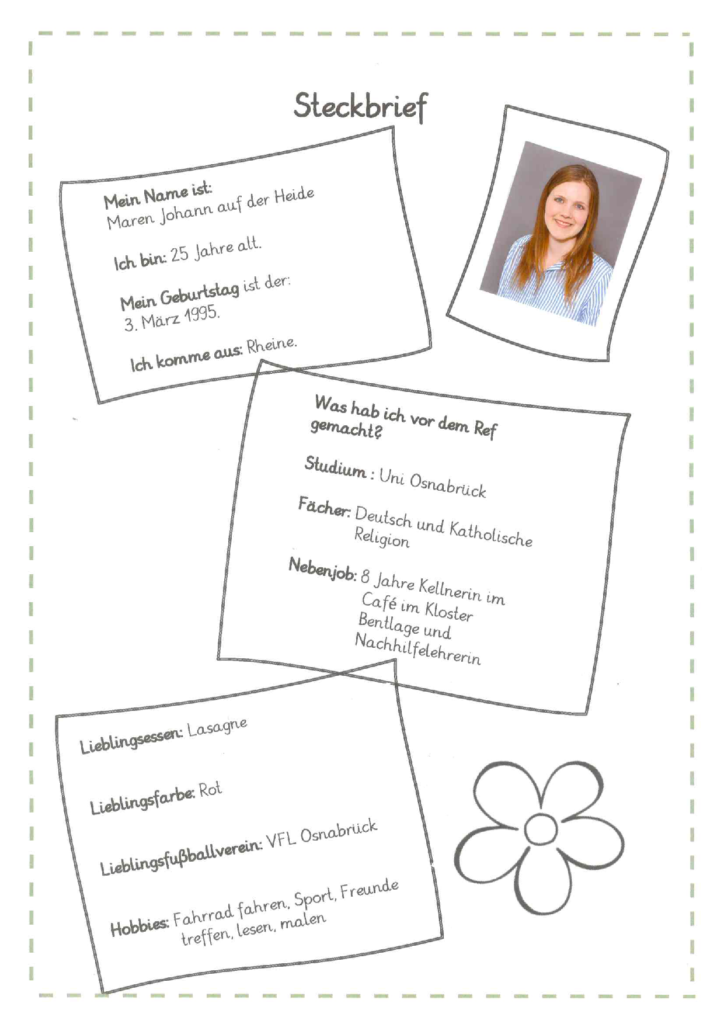 Steckbrief
Mein Name ist:
Maren Johann auf der Heide
Ich bin: 25 Jahre alt.
Mein Geburtstag ist der:
3. März 1995.
Ich komme aus: Rheine.
Was hab ich vor dem Ref
gemacht?
Studium : Uni Osnabrück
Fächer: Deutsch und Katholische
Religion
Nebenjob: 8 Jahre Kellnerin im
Café im Kloster
Bentlage und
Nachhilfelehrerin
Lieblingsessen: Lasagne
Lieblingsfarbe: Rot
Lieblingsfußballverein: VFL Osnabrück
Hobbies: Fahrrad fahren, Sport, Freunde
treffen, lesen, malen